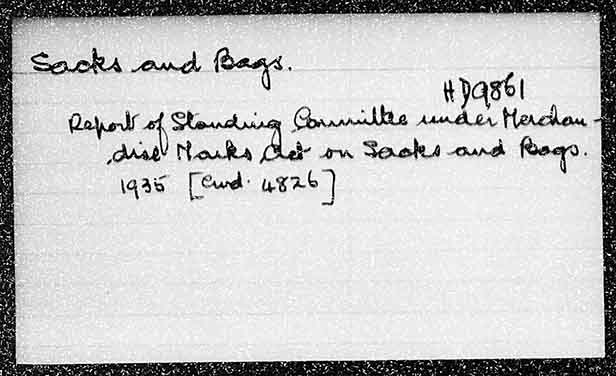 Sacks and Bags.
HD9861
Report of Standing Committee under Merchan-
dise Marks Act on Sacks and Bags.
1935 [Cmd. 4826]